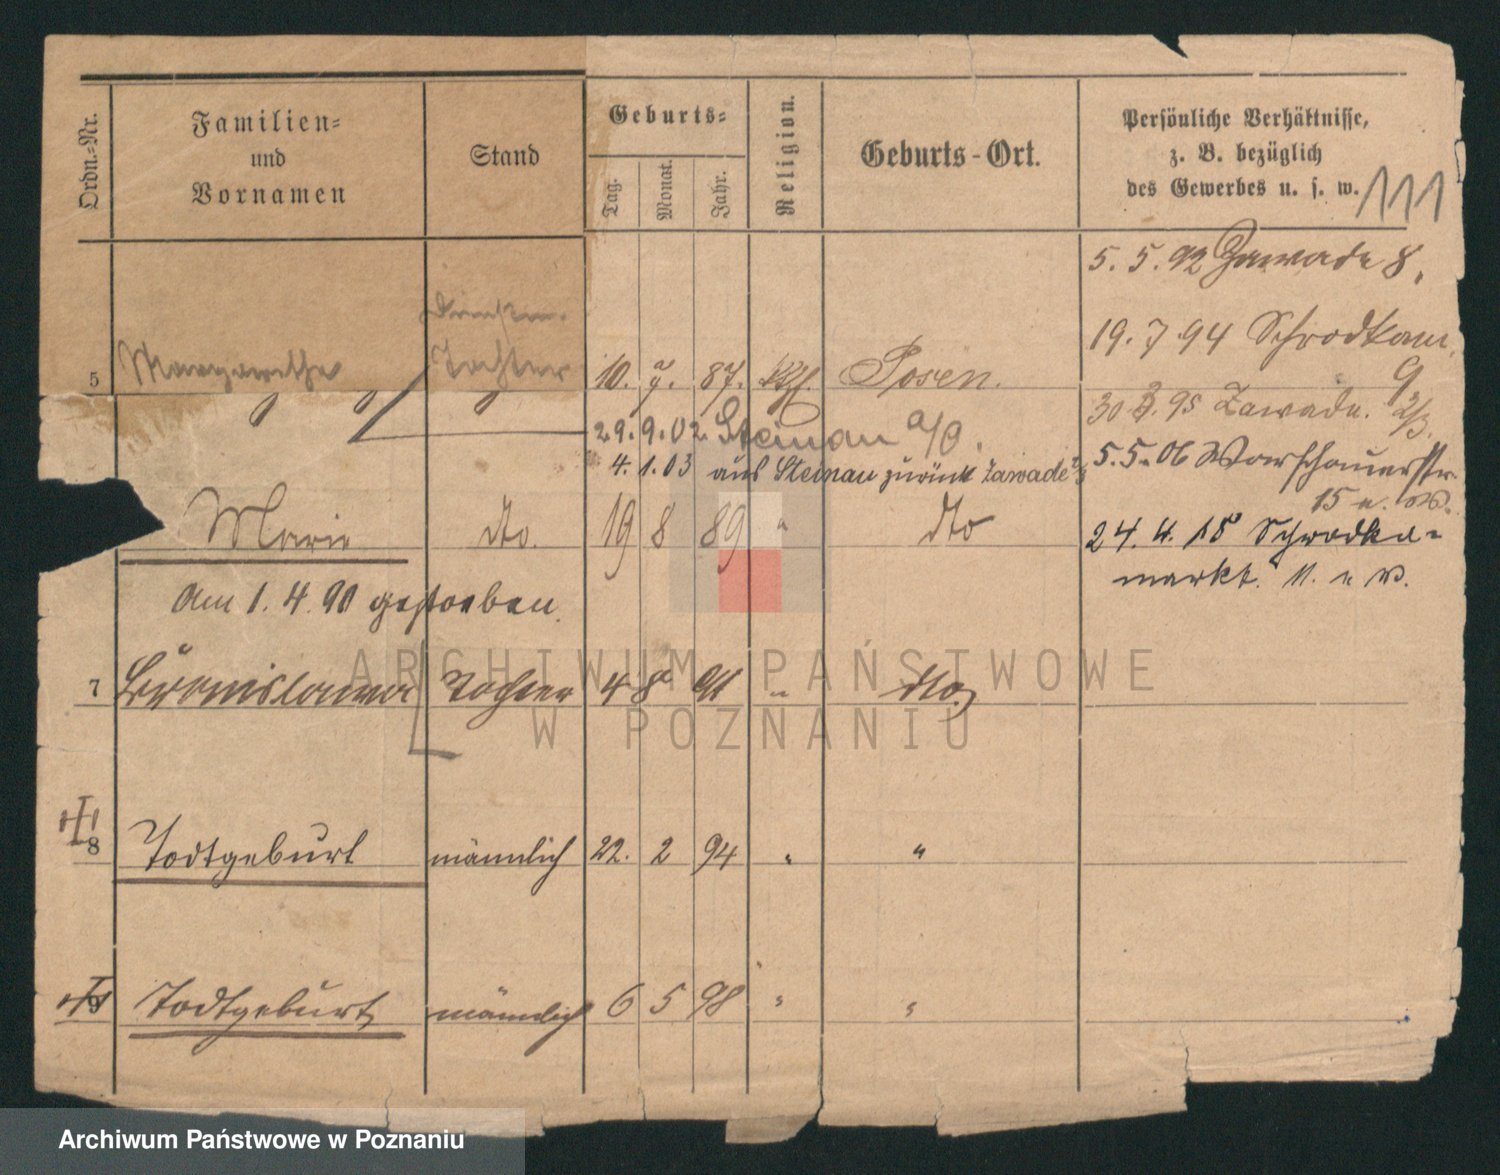 Ordn.-Nr.
Familien-
und
Vornamen
Stand
Geburts-
Tag.
Monat.
Jahr.
Religion.
Geburts-Ort.
Persönliche Verhältnisse,
z. B. bezüglich
des Gewerbes u. s. w.
111
5. 5. 92 Zawade 8.
19. 7. 94 Schrodkam.
9
30 3. 95 Zawade.
5. 5. 06 Warschauerstr.
15
24. 4. 18 Schrodka-
markt. 11. u W.
5 Margarethe Tochter 10. 7. 87. Kth. Posen.
29. 9. 02. Steinau a/O.
4. 1. 03 aus Steinau zurück Zawade
Marie dto. 19 8 89 " dto
Am 1. 4. 90 gestorben.
7 Bronislawa Tochter 4 8 91 " dto.
8 Todtgeburt männlich 22. 2 94 " "
9 Todtgeburt männlich 6 5 98 " "
ARCHIWUM PAŃSTWOWE
W POZNANIU
Archiwum Państwowe w Poznaniu